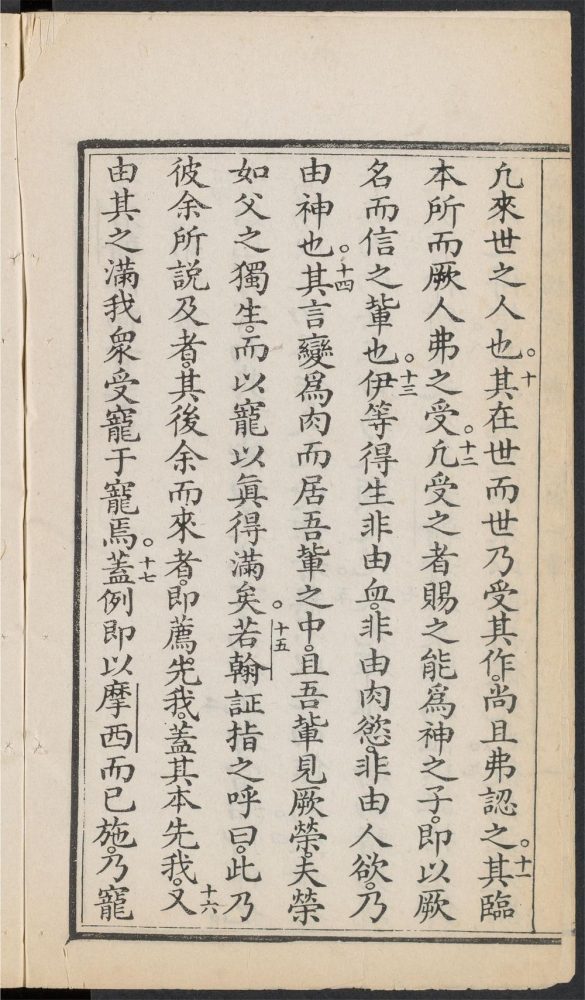 凢來世之人也。十其在世而世乃受其作。尚且弗認之。十一其臨
本所而厥人弗之受。十二凢受之者賜之能爲神之子。即以厥
名而信之軰也。十三伊等得生非由血。非由肉慾。非由人欲。乃
由神也。十四其言變爲肉而居吾軰之中。且吾軰見厥榮。夫榮
如父之獨生。而以寵以眞得滿矣。十五若翰証指之呼曰。此乃
彼余所説及者。其後余而來者。即薦先我。蓋其本先我。十六又
由其之滿我衆受寵于寵焉。十七蓋例即以摩西而已施。乃寵